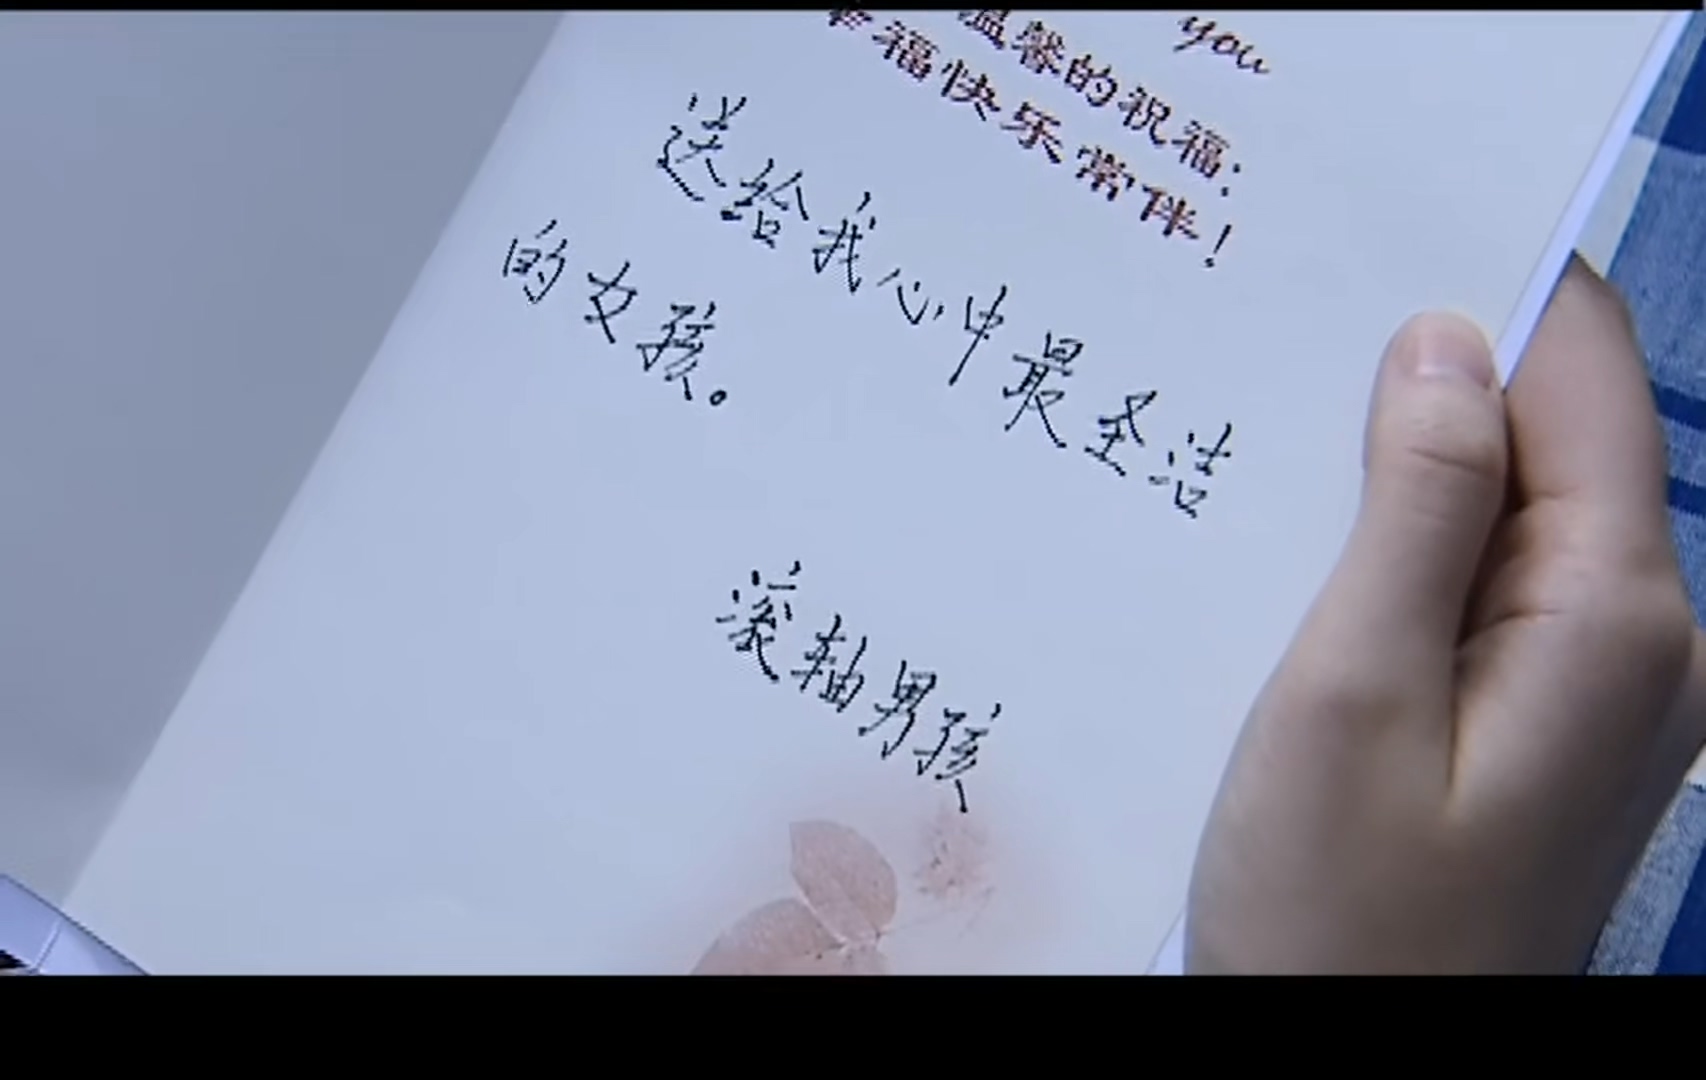 you
温馨的祝福:
幸福快乐常伴!
送给我心中最圣洁
的女孩。
滚轴男孩